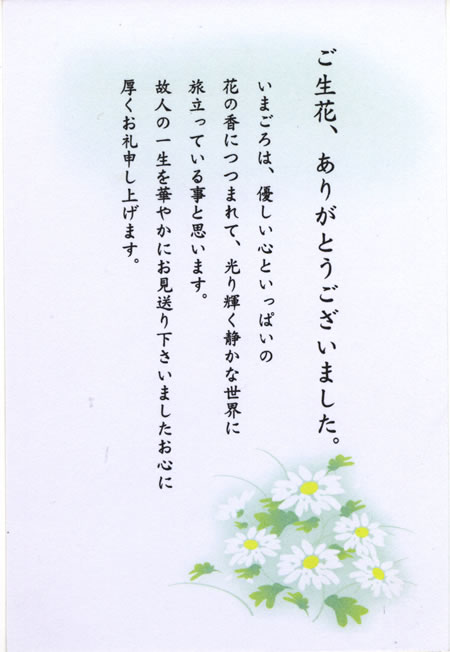 ご生花、ありがとうございました。
いまごろは、優しい心といっぱいの
花の香につつまれて、光り輝く静かな世界に
旅立っている事と思います。
故人の一生を華やかにお見送り下さいましたお心に
厚くお礼申し上げます。